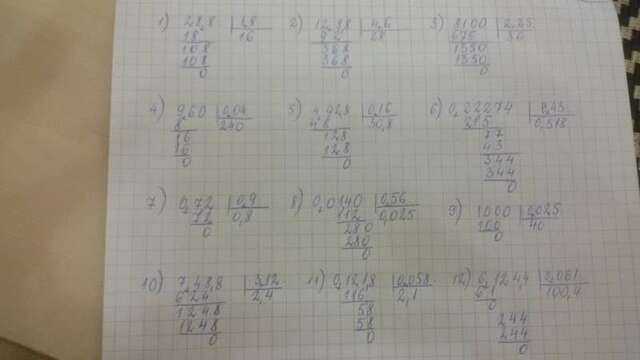 1) 28,8 | 1,8
18 | 16
108
108
0
2) 12,88 | 4,6
92 | 28
368
368
0
3) 8100 | 2,25
675 | 36
1350
1350
0
4) 9,60 | 0,04
8 | 240
16
16
0
5) 4,928 | 0,16
48 | 30,8
128
128
0
6) 0,22274 | 0,43
215 | 0,518
77
43
344
344
0
7) 0,72 | 0,9
72 | 0,8
0
8) 0,0140 | 0,56
112 | 0,025
280
280
0
9) 1000 | 0,025
100 | 40
0
10) 7,48,8 | 3,12
624 | 2,4
1248
1248
0
11) 0,121,8 | 0,058
116 | 2,1
58
58
0
12) 6,124,4 | 0,061
61 | 100,4
0
244
244
0